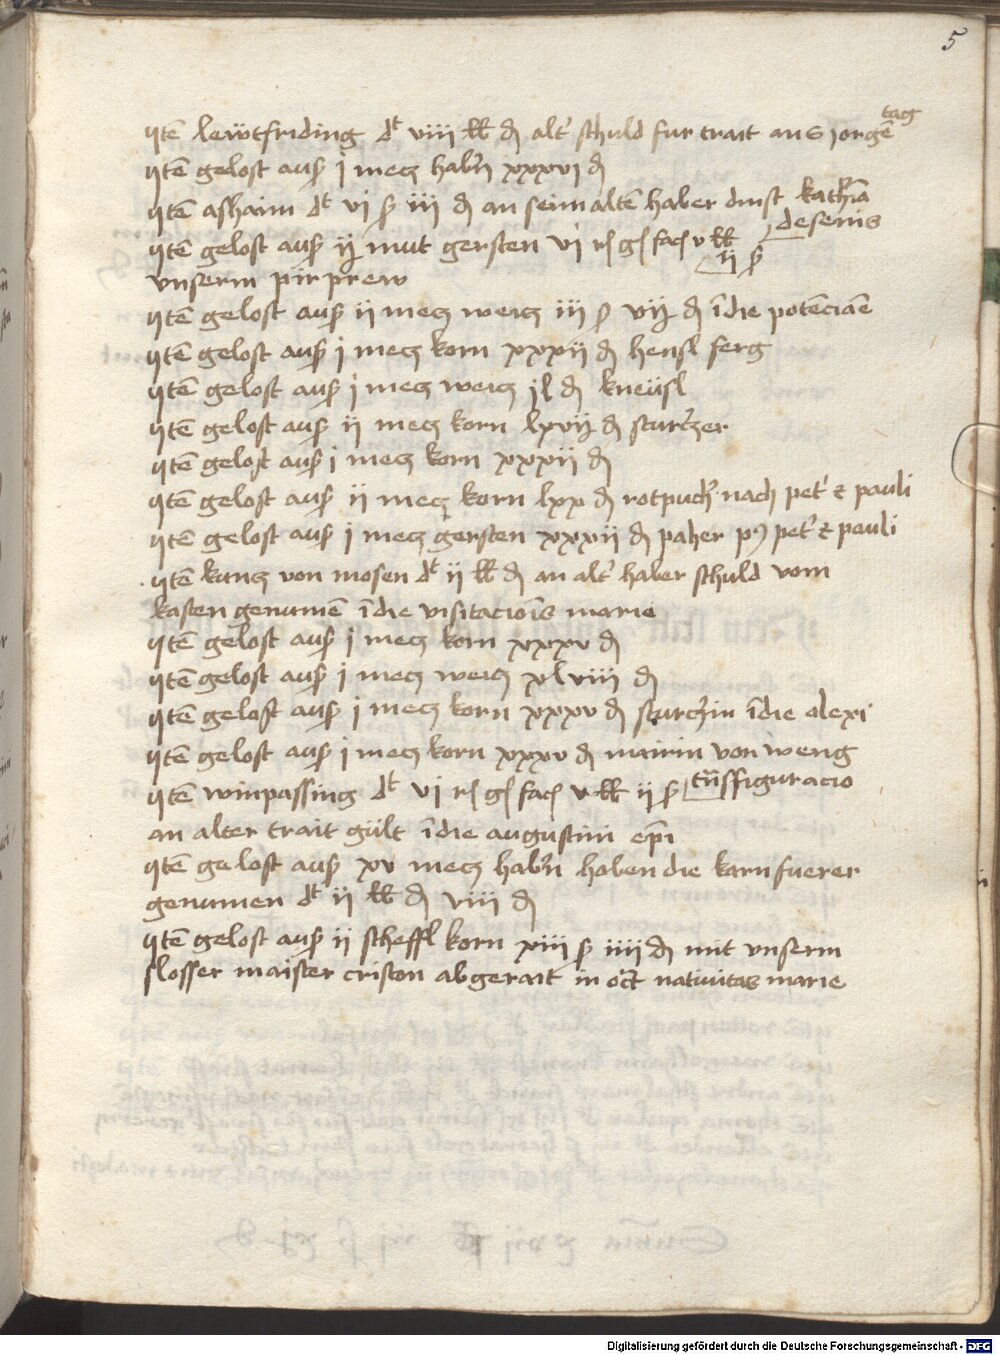 5
Itē lewtfriding dt viii ℔ ₰ alt' schuld fur trait an s jorgē tag
Itē gelost auß i mecz hab'n xxxvi ₰
Itē ashaim dt vi ß iii ₰ an seim altē haber dinst kath'ia
Itē gelost auß ij mut gersten vi r gͭ fac v ℔ ii ß de senis
vnserm pirprew
Itē gelost auß ii mecz weicz iii ß vij ₰ ī die potēciāe
Itē gelost auß i mecz korn xxxii ₰ hensl ferg
Itē gelost auß i mecz weicz jl ₰ kneüsl
Itē gelost auß ii mecz korn lxvij ₰ sturczer
Itē gelost auß i mecz korn xxxii ₰
Itē gelost auß ii mecz korn lxx ₰ rotpuch' nach pet' et pauli
Itē gelost auß i mecz gersten xxxii ₰ paher p9 pet' et pauli
Itē kuncz von mosen dt ii ℔ ₰ an alt' haber schuld vom
kasten genumē ī die visitaciōis marie
Itē gelost auß i mecz korn xxxv ₰
Itē gelost auß i mecz weicz xlviii ₰
Itē gelost auß i mecz korn xxxv ₰ sturczin ī die alexi
Itē gelost auß i mecz korn xxxv ₰ mairin von weng
Itē winpassing dt vi r gͭ fac v ℔ ii ß tn̄sfiguracio
an alter trait gült ī die augustini ep̄i
Itē gelost auß xv mecz hab'n haben die karnfuerer
genumen dt ii ℔ ₰ viii ₰
Itē gelost auß ii scheffl korn xiii ß iiii ₰ mit vnserm
slosser maister criston abgerait in oct nativitas marie
Digitalisierung gefördert durch die Deutsche Forschungsgemeinschaft - DFG